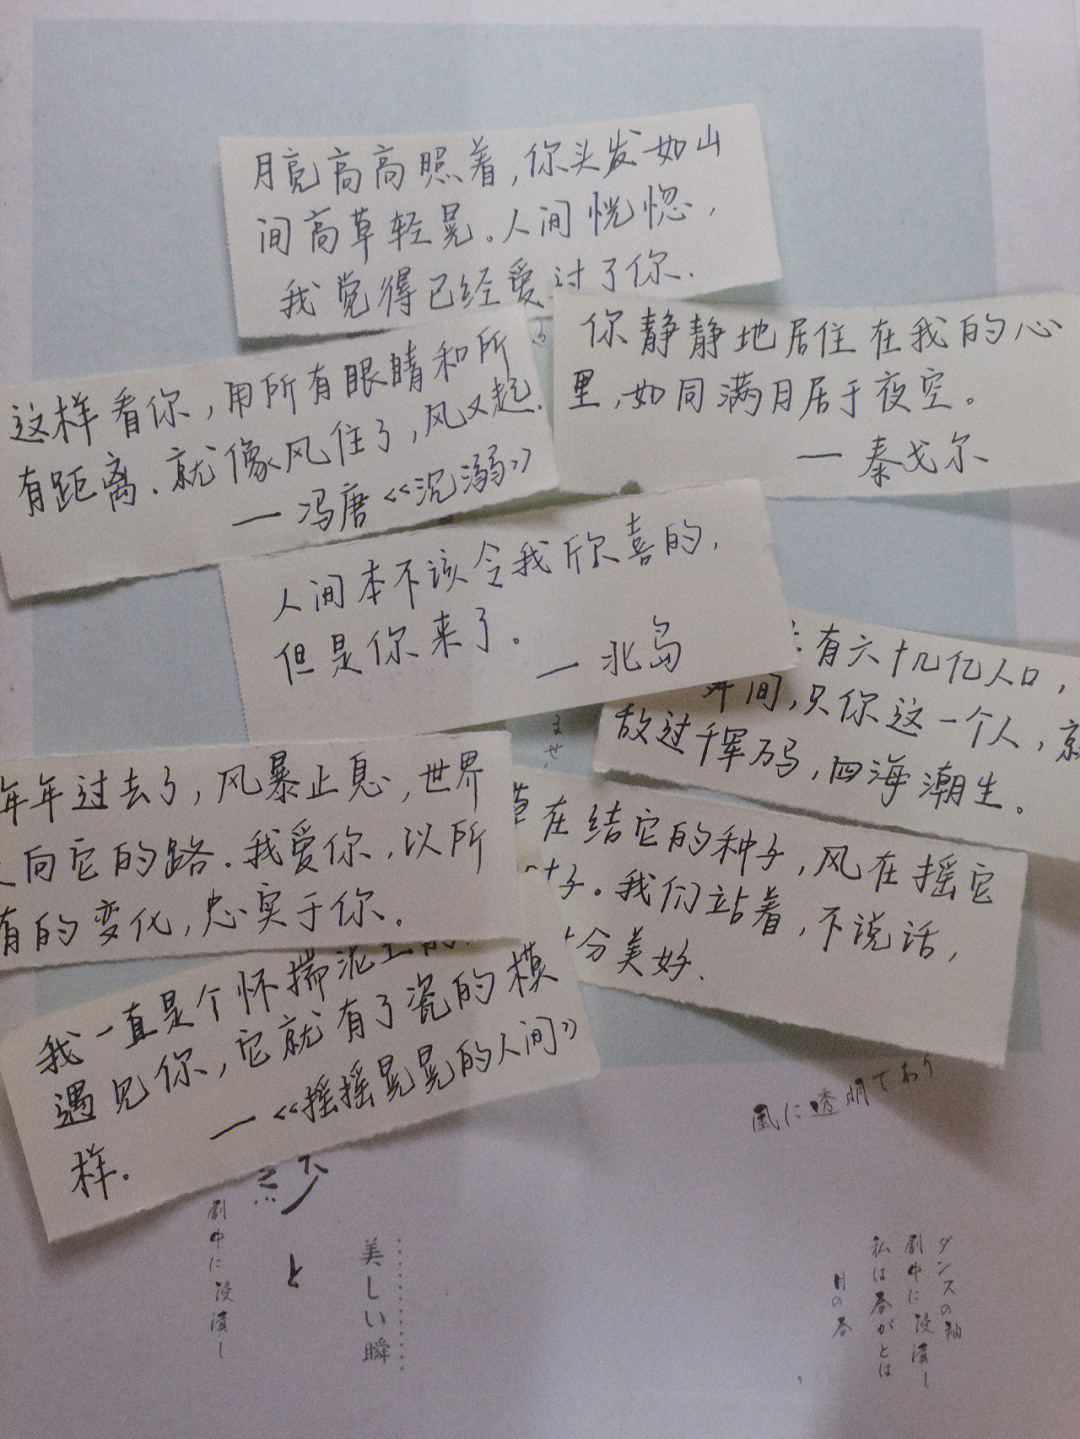 月亮高高照着,你头发如山
间高草轻晃。人间恍惚,
我觉得已经爱过了你.
你静静地居住在我的心
里,如同满月居于夜空。
— 泰戈尔
这样看你,用所有眼睛和所
有距离.就像风住了,风又起.
— 冯唐《沉溺》
人间本不该令我欣喜的,
但是你来了。
— 北岛
有六十几亿人口,
间,只你这一个人,就
放过千军万马,四海潮生。
年年过去了,风暴止息,世界
向它的路.我爱你,以所
有的变化,忠实于你.
在结它的种子,风在摇它
叶子。我们站着,不说话,
十分美好.
我一直是个怀揣泥土的
遇见你,它就有了瓷的模
样。
— 《摇摇晃晃的人间》
風に透明であり
劇中に浸漬し
と
美しい瞬
ダンスの袖
劇中に浸漬し
私は春がとは
月の春
ませ